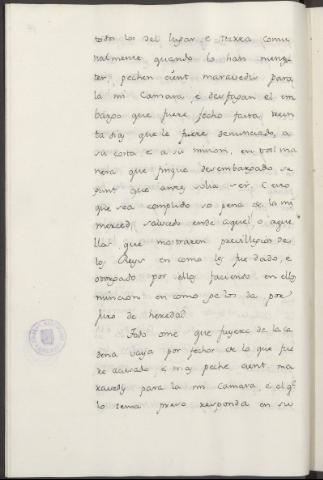 todo los del lugar e tierra comu
nalmente quando lo hobi menes
ter, pechen cient maravedis para
la mi Camara, e desfagan el em
bargo que fuere fecho fasta trein
ta dias que le fuere denunciado, a
su costa e a su mision, en tal ma
nera que finque desembargado se
gunt que antes solia ser. E esto
que sea complido so pena de la mi
merced, salvedo ende aquel, o aque
llas que mostraren previllegio de
los Reyes en como les fue dado, e
otorgado por ellos faciendo en ellos
mincion en como se los da por
juro de heredad.
Todo ome que fuyere de la ca
dena vaya por fechor de lo que fue
re acusado e mas peche cient ma
ravedis para la mi Camara, e el q.
lo tenia preso responda en su